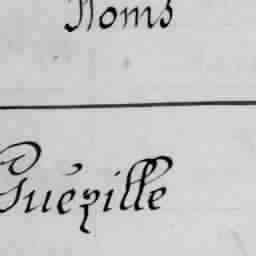 Noms
Guézille